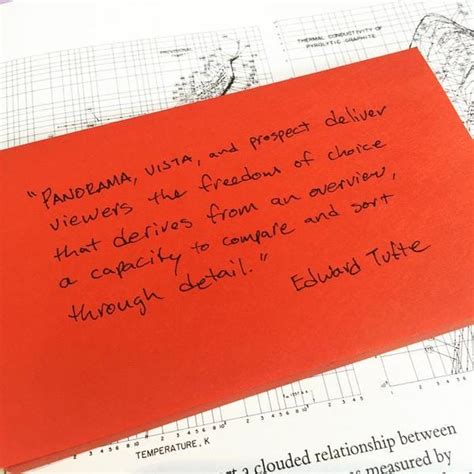 PROVISIONAL
THERMAL CONDUCTIVITY OF
PYROLYTIC GRAPHITE
"PANORAMA, VISTA, and prospect deliver
viewers the freedom of choice
that derives from an overview,
a capacity to compare and sort
through detail."
Edward Tufte
TEMPERATURE, K
a clouded relationship between
measured by